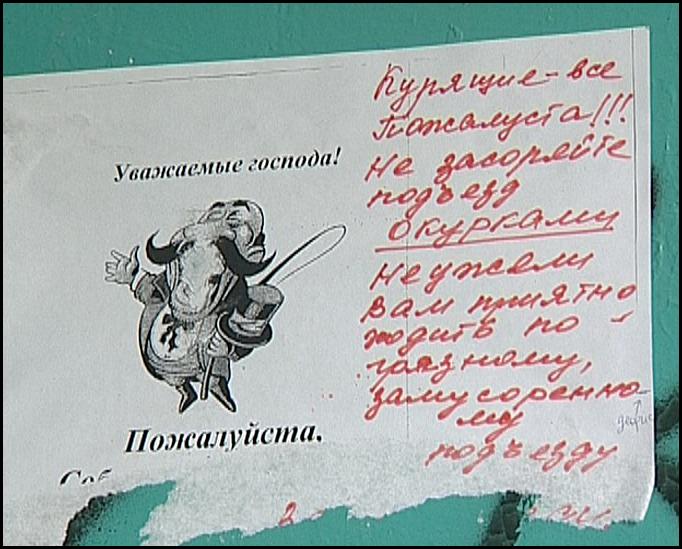 Уважаемые господа!
Пожалуйста.
Соб
Курящие - все
Пожалуста!!!
Не засоряйте
подъезд
окурками
Неужели
Вам приятно
ходить по -
грязному,
замусоренно-
му
дефис
подъезду